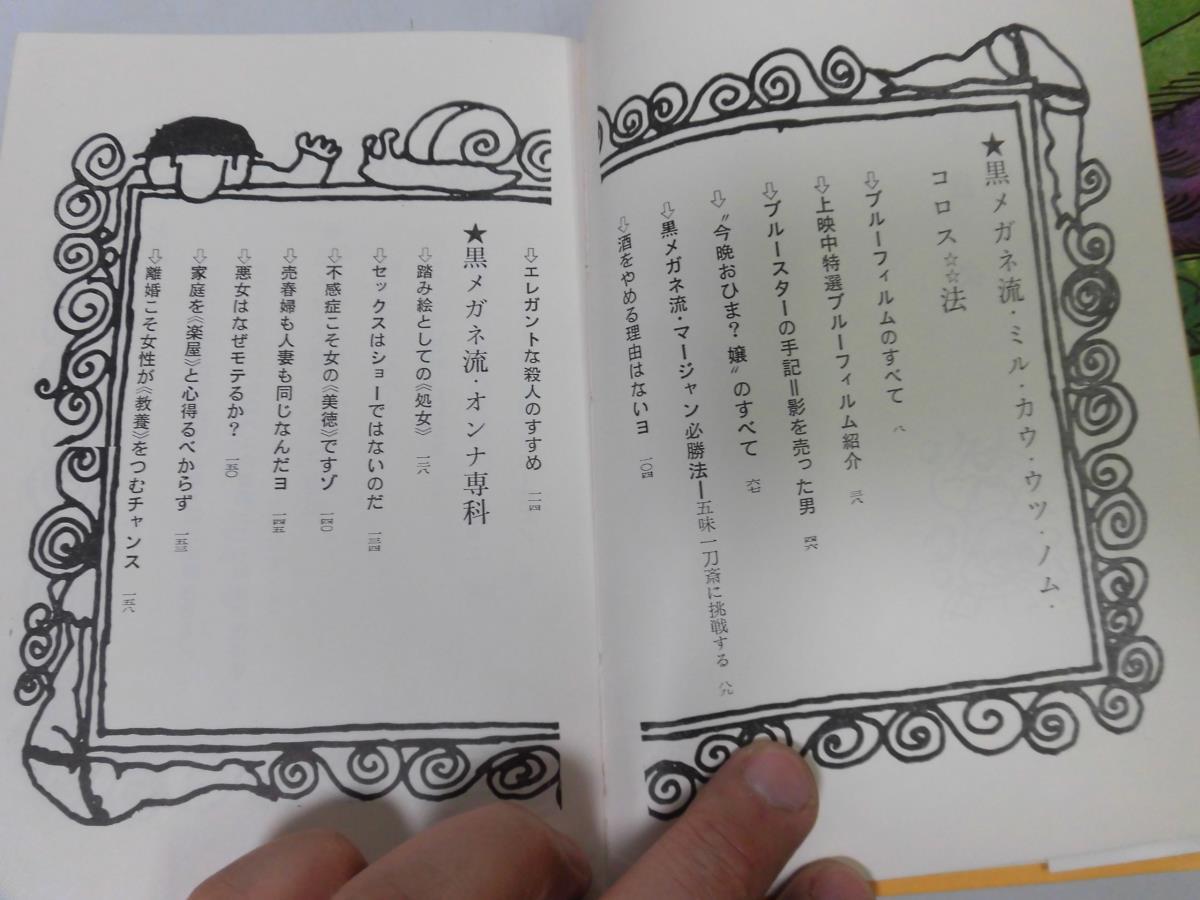 ★黒メガネ流・ミル・カウ・ウツ・ノム・
コロス☆☆法
⇩ブルーフィルムのすべて 八
⇩上映中特選ブルーフィルム紹介 三八
⇩ブルースターの手記＝影を売った男 四六
⇩〝今晩おひま？嬢〟のすべて 六七
⇩黒メガネ流・マージャン必勝法―五味一刀斎に挑戦する 八九
⇩酒をやめる理由はないヨ 一〇四
⇩エレガントな殺人のすすめ 一一四
★黒メガネ流・オンナ専科
⇩踏み絵としての《処女》 一二八
⇩セックスはショーではないのだ 一三四
⇩不感症こそ女の《美徳》ですゾ 一四〇
⇩売春婦も人妻も同じなんだヨ 一四五
⇩悪女はなぜモテるか？ 一五〇
⇩家庭を《楽屋》と心得るべからず 一五三
⇩離婚こそ女性が《教養》をつむチャンス 一五八